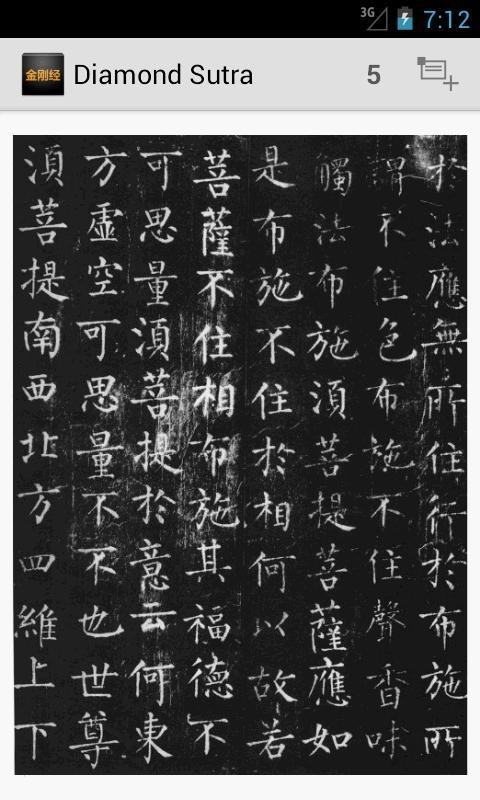 3G
7:12
金刚经
Diamond Sutra
5
於法應無所住行於布施所
謂不住色布施不住聲香味
觸法布施須菩提菩薩應如
是布施不住於相何以故若
菩薩不住相布施其福德不
可思量須菩提於意云何東
方虛空可思量不不也世尊
須菩提南西北方四維上下